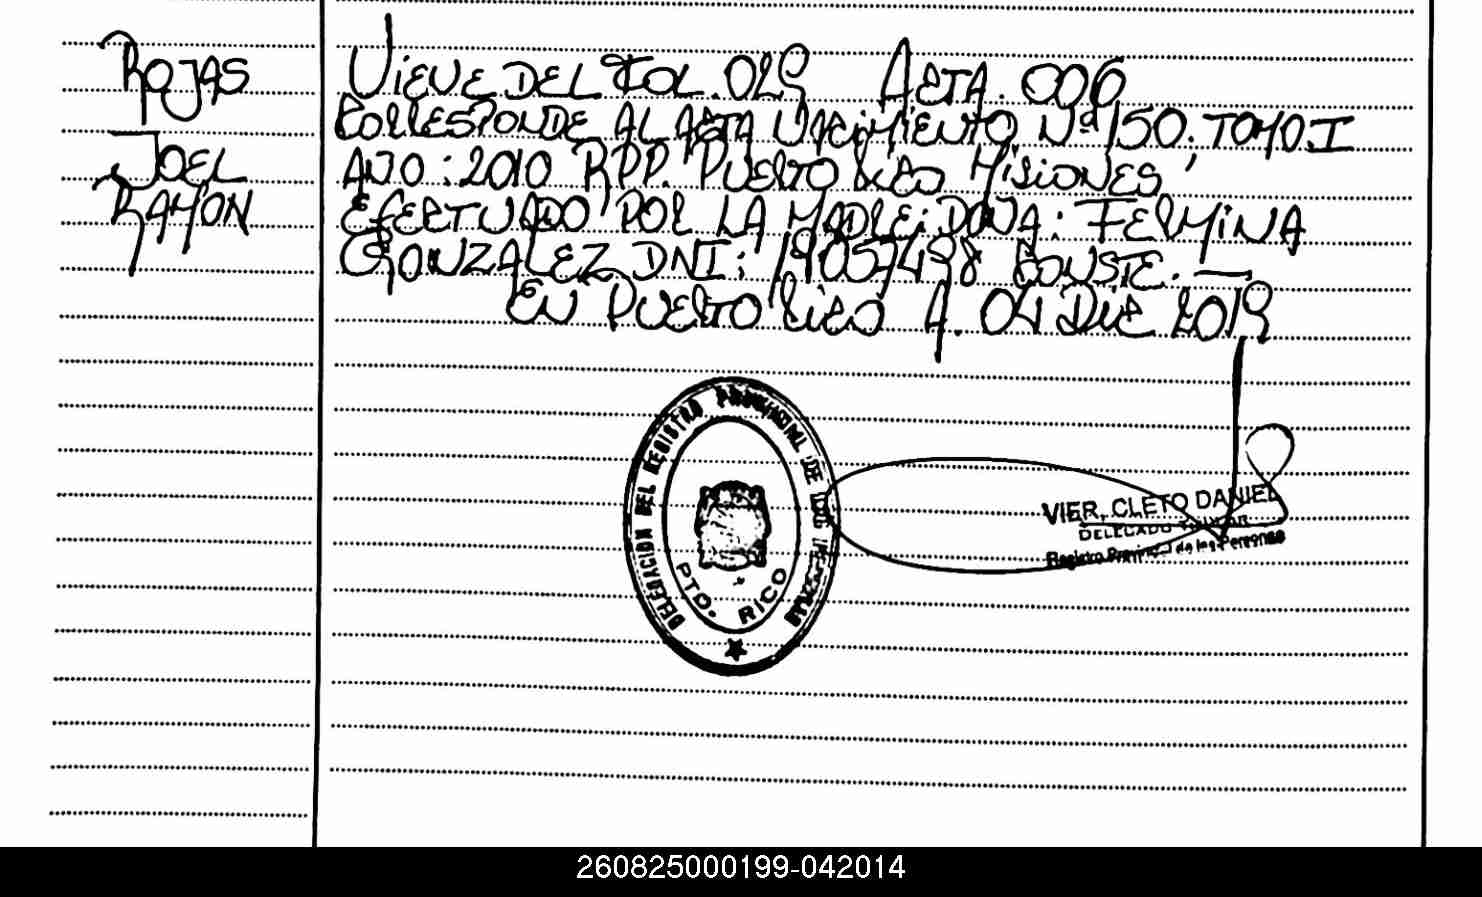 ROJAS
JOEL
RAMON
VIENE DEL FOL. 029 ACTA. 006
CORRESPONDE AL ACTA NACIMIENTO Nº 150: TOMO. I
AÑO: 2010 RPP. PUERTO RICO MISIONES,
EFECTUADO POR LA MADRE: DOÑA: FERMINA
GONZALEZ DNI: 19057498 CONSTE. —
EN PUERTO RICO A. 04 DIC 2019
DELEGACION DEL REGISTRO PROVINCIAL DE LAS PERSONAS
PTO. RICO
VIER, CLETO DANIEL
DELEGADO TITULAR
Registro Provincial de las Personas
260825000199-042014